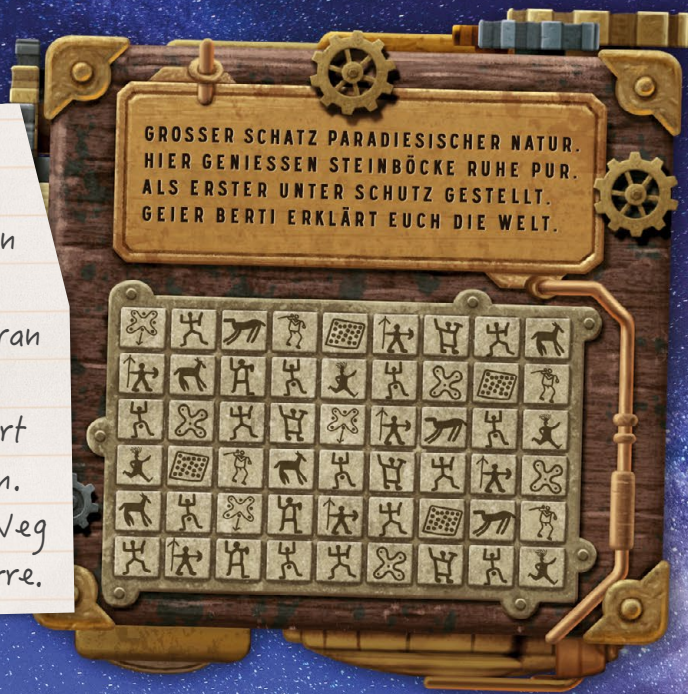 GROSSER SCHATZ PARADIESISCHER NATUR.
HIER GENIESSEN STEINBÖCKE RUHE PUR.
ALS ERSTER UNTER SCHUTZ GESTELLT.
GEIER BERTI ERKLÄRT EUCH DIE WELT.
n
ran
rt
n.
Weg
rre.